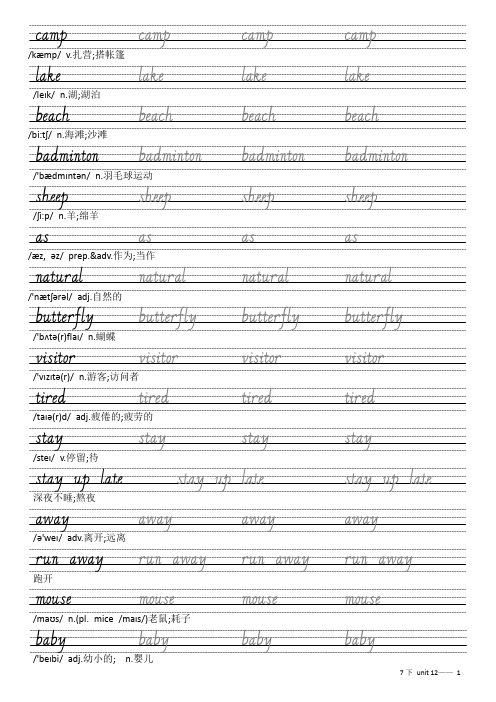 camp camp camp camp
/kæmp/ v.扎营;搭帐篷
lake lake lake lake
/leɪk/ n.湖;湖泊
beach beach beach beach
/bi:tʃ/ n.海滩;沙滩
badminton badminton badminton badminton
/'bædmɪntən/ n.羽毛球运动
sheep sheep sheep sheep
/ʃi:p/ n.羊;绵羊
as as as as
/æz, əz/ prep.&adv.作为;当作
natural natural natural natural
/'nætʃərəl/ adj.自然的
butterfly butterfly butterfly butterfly
/'bʌtə(r)flaɪ/ n.蝴蝶
visitor visitor visitor visitor
/'vɪzɪtə(r)/ n.游客;访问者
tired tired tired tired
/taɪə(r)d/ adj.疲倦的;疲劳的
stay stay stay stay
/steɪ/ v.停留;待
stay up late stay up late stay up late
深夜不睡;熬夜
away away away away
/ə'weɪ/ adv.离开;远离
run away run away run away run away
跑开
mouse mouse mouse mouse
/maʊs/ n.(pl. mice /maɪs/)老鼠;耗子
baby baby baby baby
/'beɪbi/ adj.幼小的; n.婴儿
7 下 unit 12—— 1